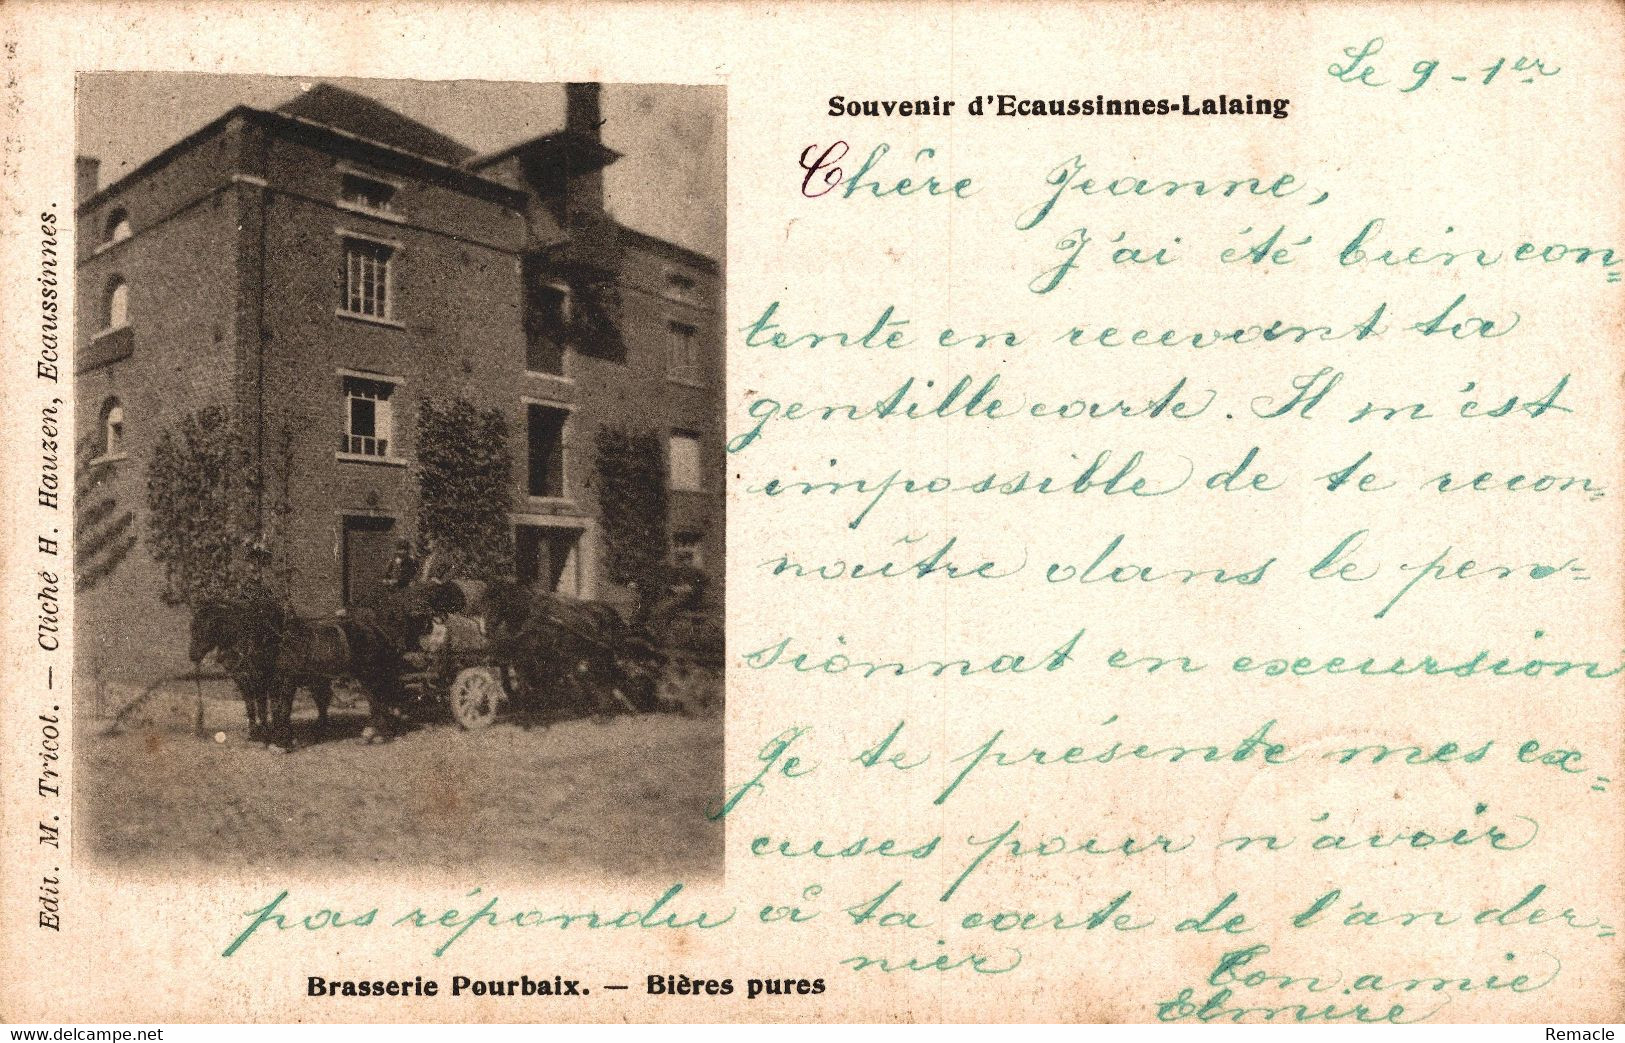 Le 9 - 1er
Souvenir d'Ecaussinnes-Lalaing
Chêre Jeanne,
J'ai été bien con=
tente en recevant ta
gentille carte. Il m'est
impossible de te recon=
naître dans le pen=
sionnat en excursion
Je te présente mes ex=
cuses pour n'avoir
pas répondu à ta carte de l'an der=
nier
Ton amie
Elmire
Brasserie Pourbaix. — Bières pures
Edit. M. Tricot. — Cliché H. Hauzen, Ecaussinnes.
www.delcampe.net
Remacle